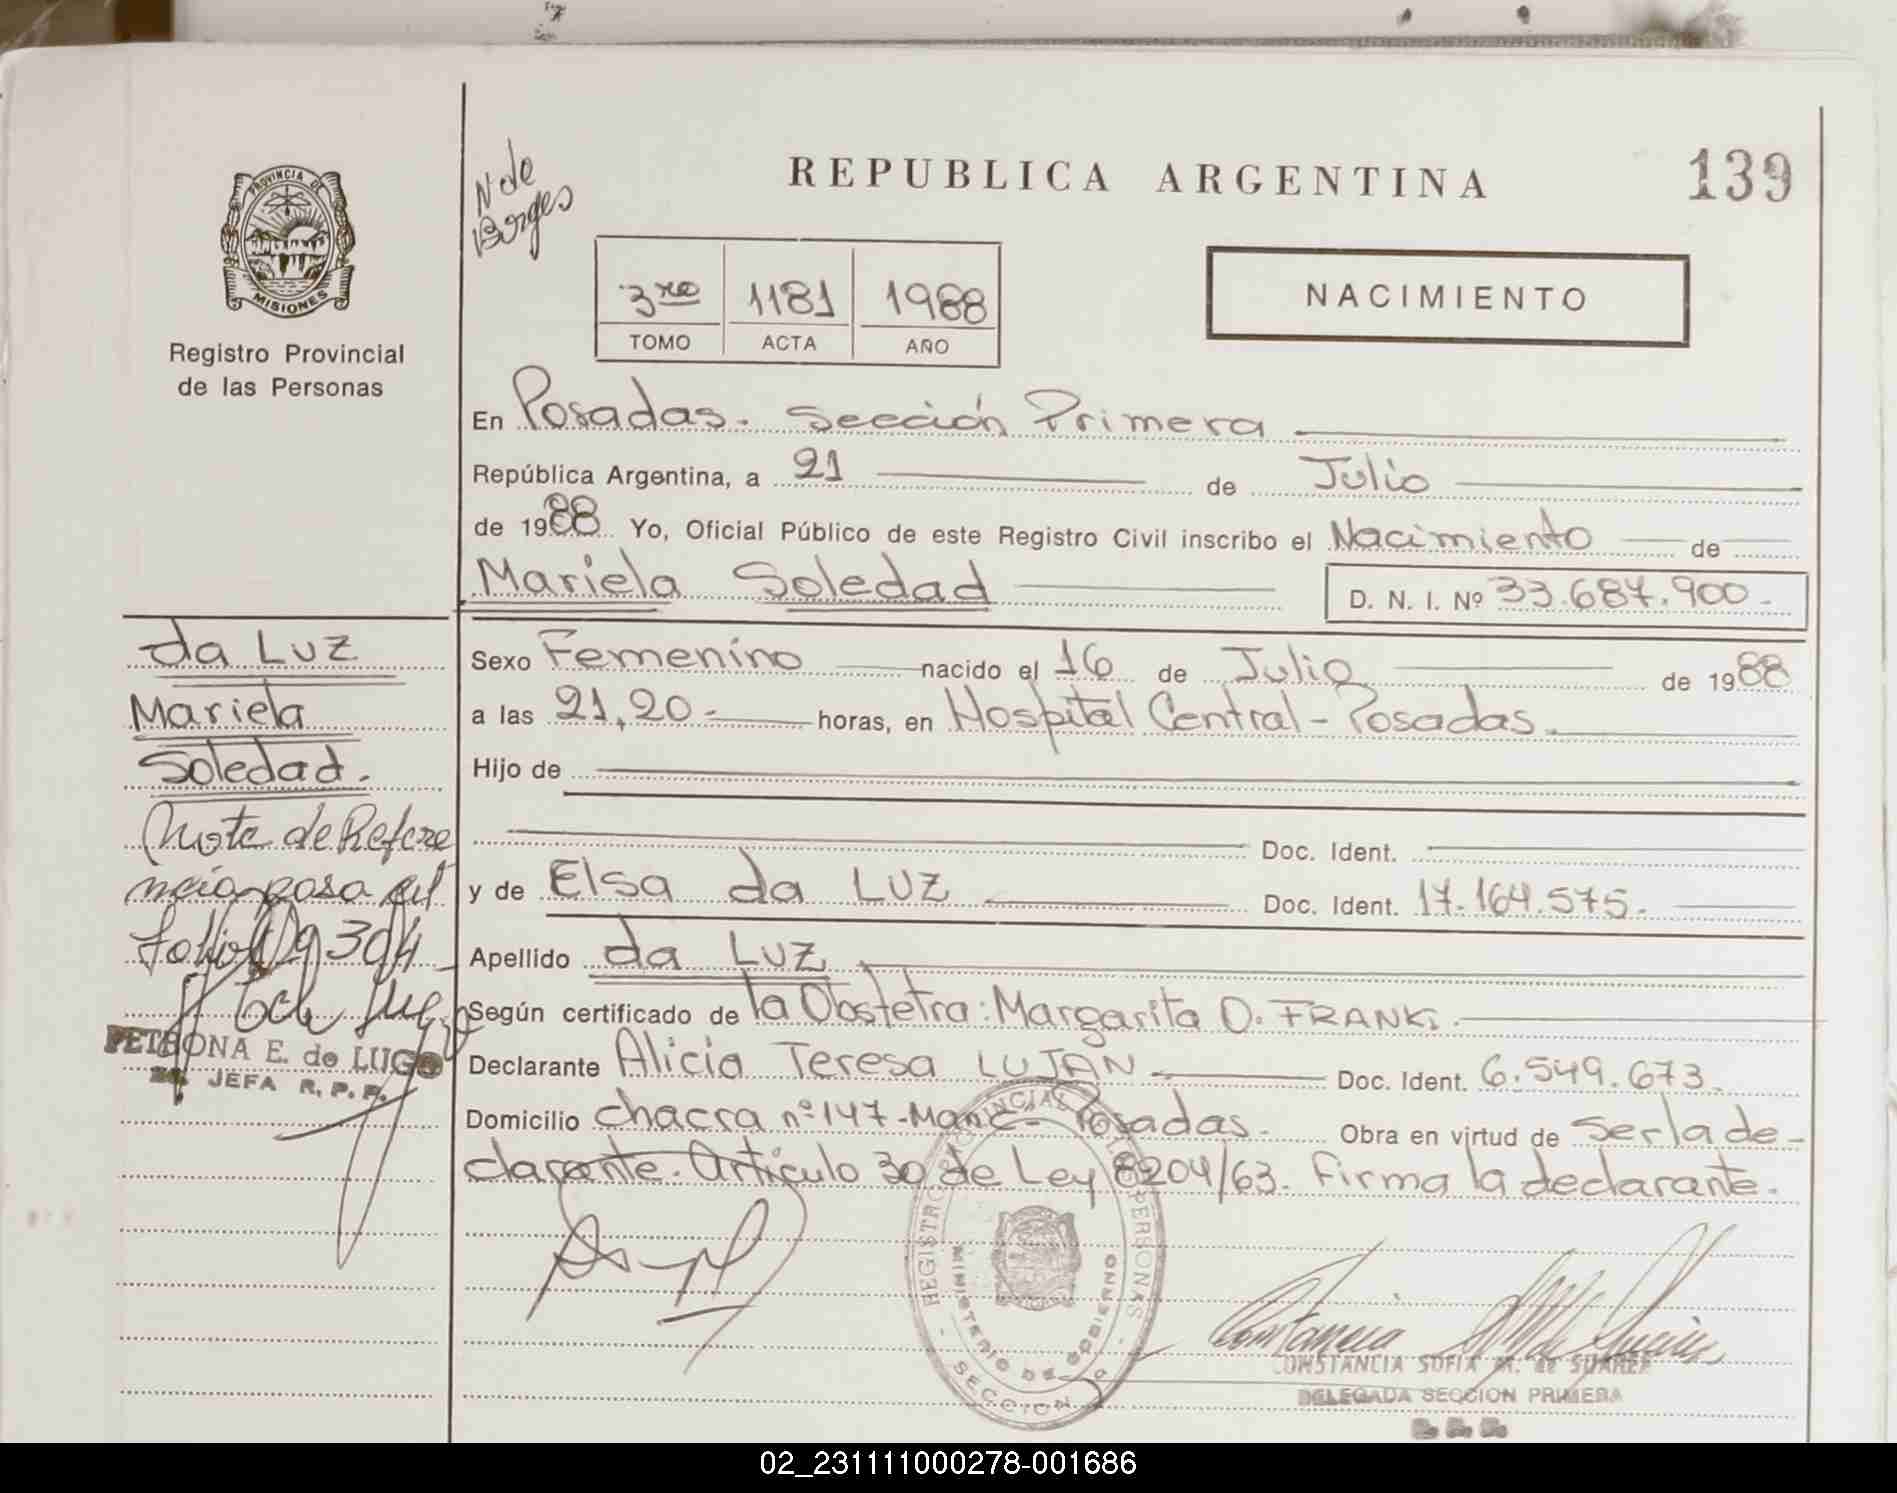 N de
Borges
REPUBLICA ARGENTINA
139
PROVINCIA DE
MISIONES
Registro Provincial
de las Personas
3ro 1181 1988
TOMO ACTA AÑO
NACIMIENTO
En Posadas. Sección Primera
República Argentina, a 21 de Julio
de 1988 Yo, Oficial Público de este Registro Civil inscribo el Nacimiento de
Mariela Soledad D. N. I. Nº 33.687.900.-
da LUZ
Mariela
Soledad.
Nota de Refere
ncia pasa al
folio 304
PETRONA E. de LUGO
JEFA R. P. P.
Sexo Femenino nacido el 16 de Julio de 1988
a las 21,20.- horas, en Hospital Central - Posadas.
Hijo de
Doc. Ident.
y de Elsa da LUZ Doc. Ident. 17.164.575.
Apellido da LUZ
Según certificado de la Obstetra: Margarita O. FRANK.
Declarante Alicia Teresa LUJAN Doc. Ident. 6.549.673.
Domicilio chacra nº 147 - Manz - Posadas. Obra en virtud de ser la de-
clarante. Artículo 30 de Ley 8204/63. Firma la declarante.
REGISTRO PROVINCIAL DE LAS PERSONAS
MINISTERIO DE GOBIERNO
SECCION 1ª
CONSTANCIA SOFIA M. de SUAREZ
DELEGADA SECCION PRIMERA
02_231111000278-001686